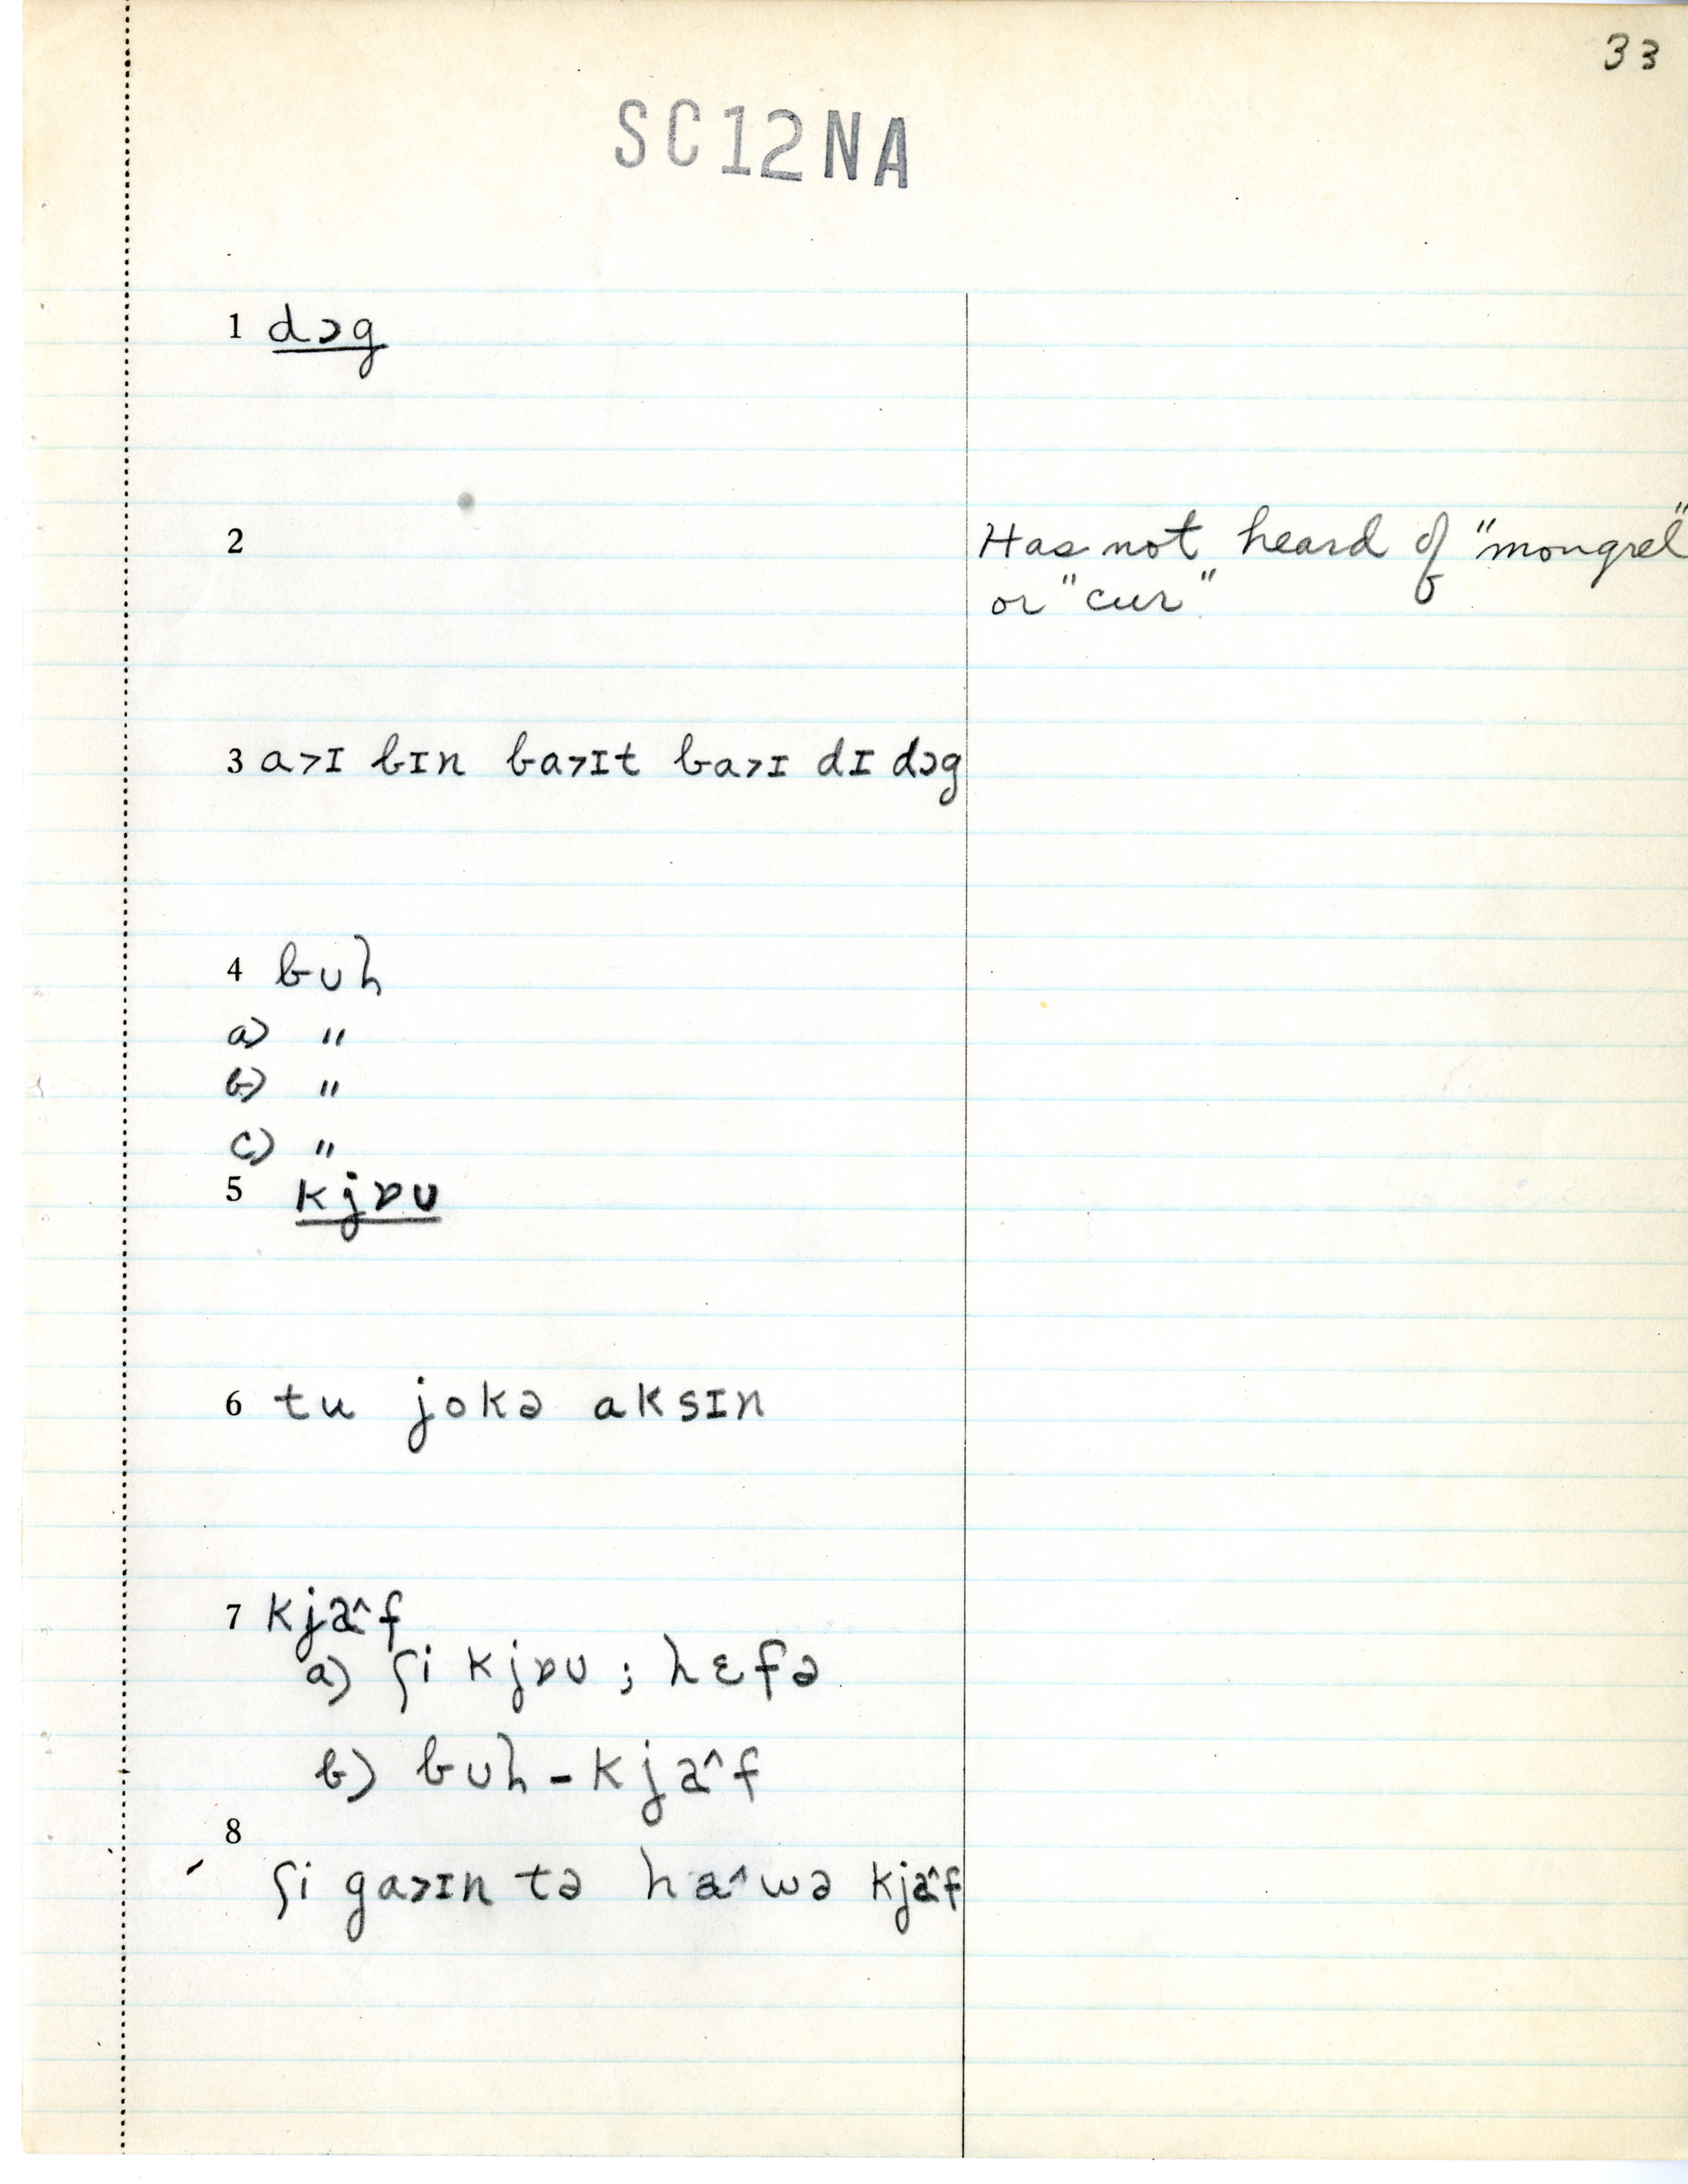 33
SC12NA
1 dɔg
2 Has not heard of "mongrel"
or "cur"
3 a>ɪ bɪn ba>ɪt ba>ɪ dɪ dɔg
4 bʊɦ
a) "
b) "
c) "
5 kjɒʊ
6 tu jokə aksɪn
7 kja^f
a) ʃi kjɒʊ ; hɛfə
b) bʊɦ - kja^f
8
ʃi ga>ɪn tə ha^wə kja^f